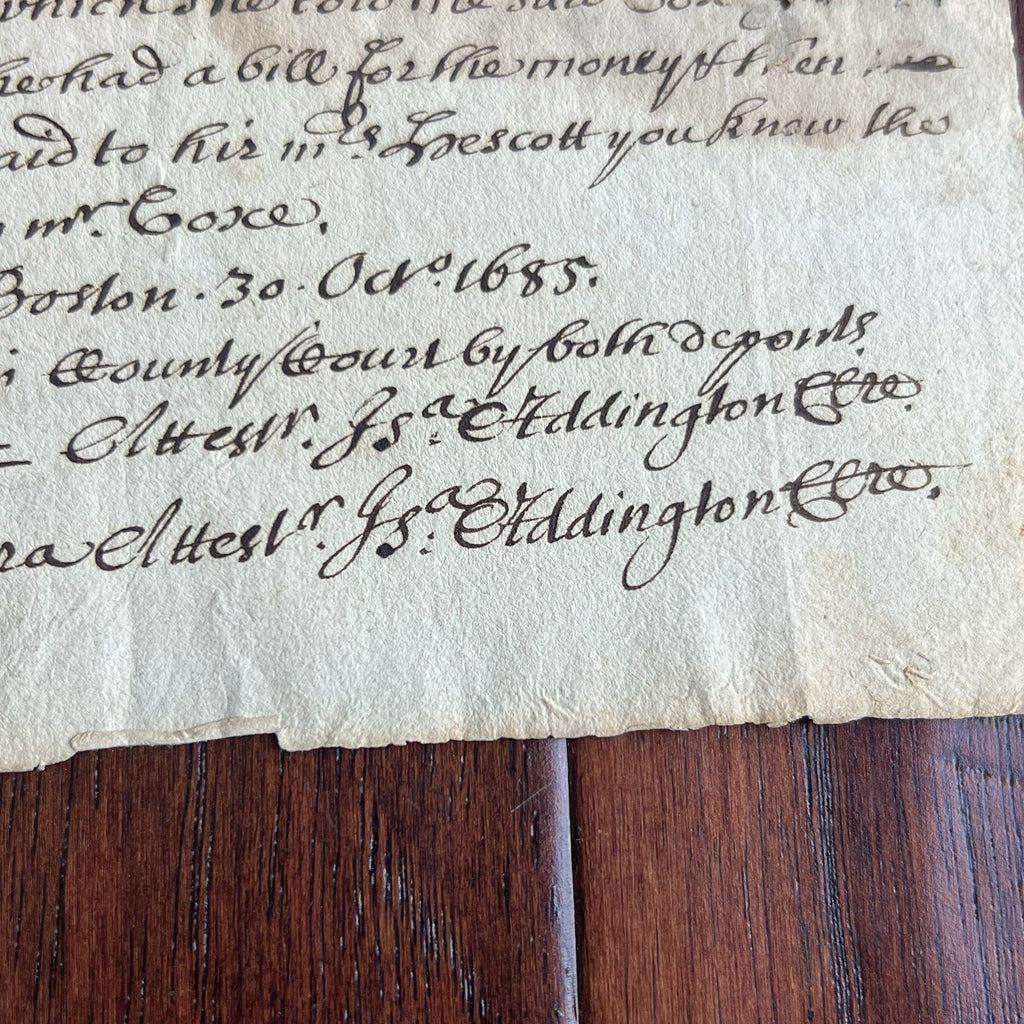 which she told the said Coxe
he had a bill for the money & then
said to his mrs Prescott you know the
mr. Coxe.
Boston . 30. Octo. 1685.
County Court by both deponts.
Attestr. Isa: Addington Cler.
ra Attestr. Isa: Addington Cler.